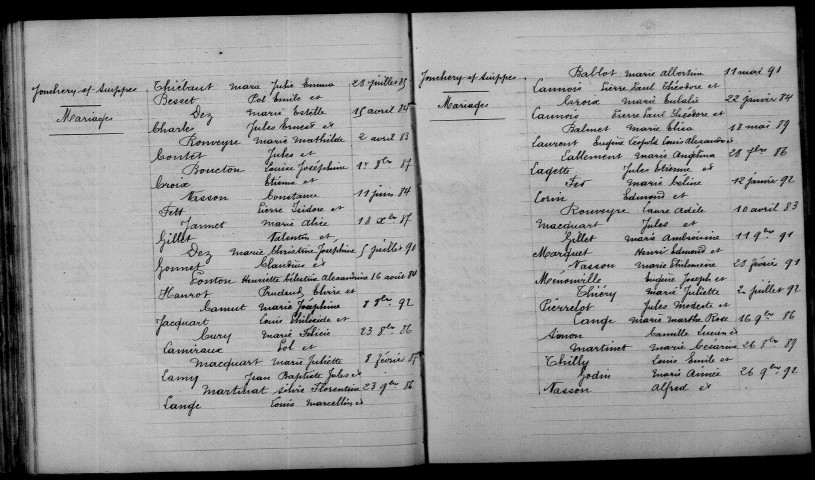 Jonchery-s/-Suippes
Mariages
Thiébaut Marie Julie Emma 28 juillet 85
Besset Pol Emile et
Dez Marie Estelle 15 avril 84
Charles Jules Ernest et
Rouveyre Marie Mathilde 2 avril 83
Contet Jules et
Boucton Louise Joséphine 1er 8bre 87
Croix Etienne et
Nasson Constance 11 juin 84
Fett Pierre Isidore et
Jannet Marie Alice 18 Xbre 87
Gillet Valentin et
Dez Marie Christine Joséphine 5 juillet 90
Gonnet Claudius et
Ponton Henriette Célestine Alexandrine 16 août 84
Haurot Prudent Cloris et
Camut Marie Joséphine 8 8bre 92
Jacquart Louis et
Cury Marie Félicie 23 8bre 86
Camiraux Pol et
Macquart Marie Juliette 8 février 87
Lamy Jean Baptiste Jules et
Martinat Silvie Florentine 23 9bre 86
Lange Louis Marcellin et
Jonchery-s/-Suippes
Mariages
Ballot Marie Albertine 11 mai 91
Lannois Pierre Paul Théodore et
Croix Marie Eulalie 22 janvier 84
Lannois Pierre Paul Théodore et
Balmet Marie Elisa 18 mai 89
Laurent Eugène Léopold Louis Alexandre et
Lallement Marie Angelina 28 7bre 86
Lagette Jules Etienne et
Fer Marie Céline 12 janvier 92
Lorin Edmond et
Rouveyre Laure Adèle 10 avril 83
Macquart Jules et
Gillet Marie Ambroisine 11 9bre 91
Marquet Henri Edmond et
Nasson Marie Philomène 28 février 91
Ménonville Eugène Joseph et
Thiéry Marie Juliette 2 juillet 92
Pierrelot Jules Modeste et
Lange Marie Marthe Rose 16 9bre 86
Simon Camille Lucien et
Martinet Marie Césarine 26 8bre 89
Thilly Louis Emile et
Godin Marie Aimée 26 9bre 92
Nasson Alfred et